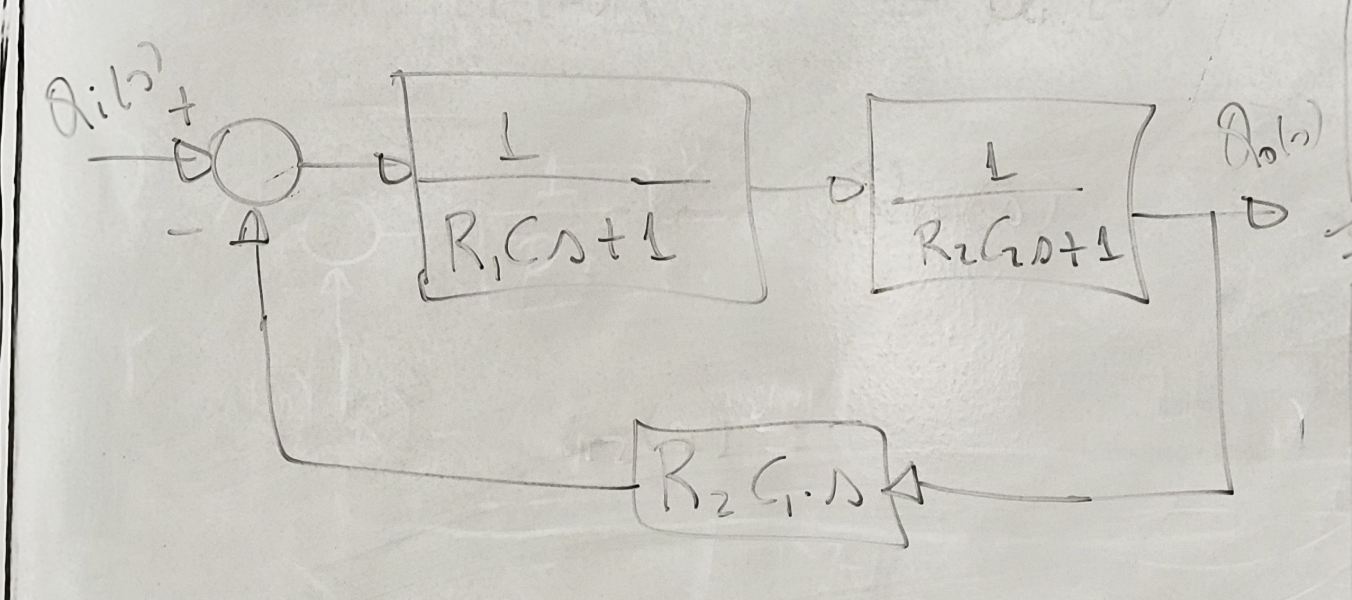 Qi(s)
+
-
1
R₁Cs+1
1
R₂C₂s+1
Qo(s)
R₂C₁.s